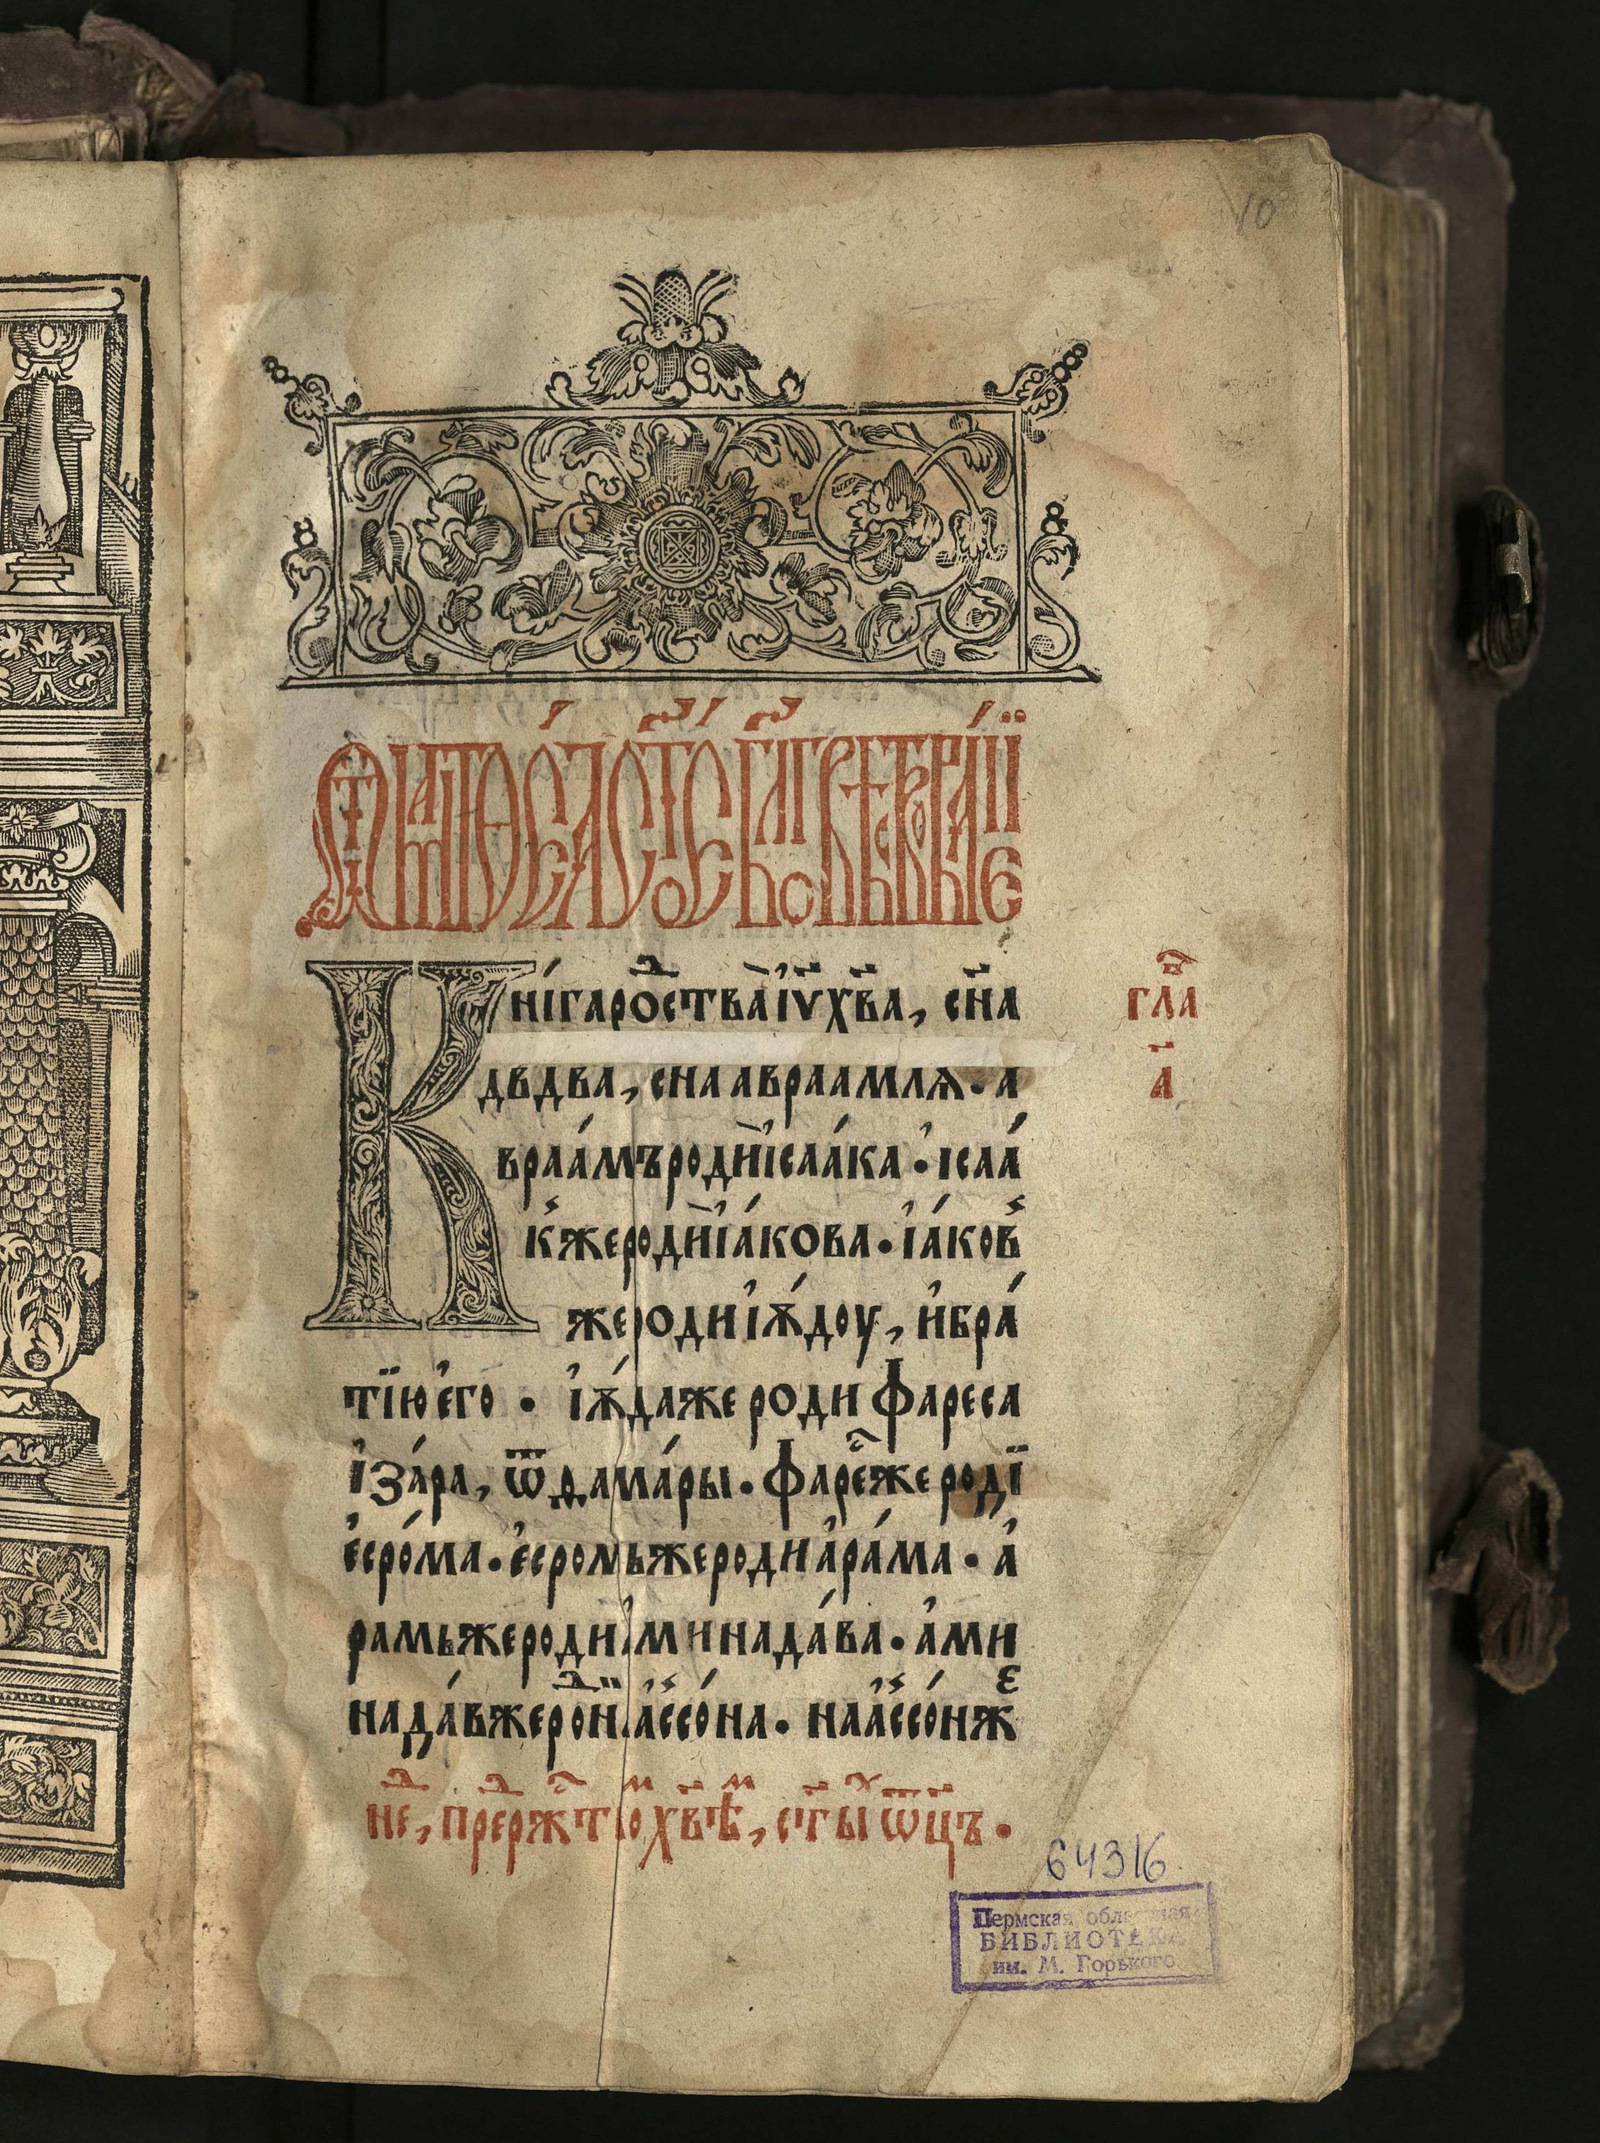 10
Ѿ МАТѲЕА СТОЕ БЛГОВѢСТВОВАНІЕ
Кни́га рожⷣства̀ і҆ѵ҃ хв҃а, сн҃а
дв҃два, сн҃а авраамлѧ • а
враа́мъ роди̏ і҆саа́ка • і҆саа́
к же роди̏ і҆а́кова • і҆а́ков
же роди і҆ю́доу, и҆ бра́
тїю є҆го • і҆ю́да же роди фареса
і҆ за́ра, ѿ ѳама́ры • фареⷭ же родї
є҆сро́ма • є҆сромъ же роди а҆ра́ма • а҆
рамъ же роди а҆минада́ва • а҆ми
нада́в же роⷣи наа҆ссо́на • наа҆ссо́н же
гла
а҃
нⷣе, преⷣ рⷤтⷭвоⷨ хв҃ѣⷨ, ст҃ыⷯ ѿц҃ъ •
64316
Пермская областная
БИБЛИОТЕКА
им. М. Горького